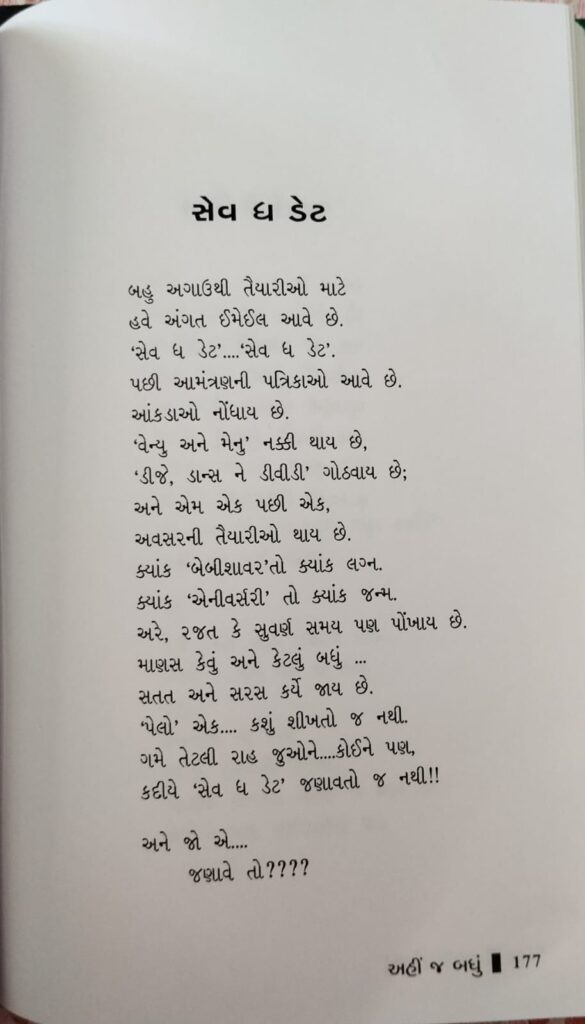 સેવ ધ ડેટ
બહુ અગાઉથી તૈયારીઓ માટે
હવે અંગત ઈમેઈલ આવે છે.
‘સેવ ધ ડેટ’....‘સેવ ધ ડેટ’.
પછી આમંત્રણની પત્રિકાઓ આવે છે.
આંકડાઓ નોંધાય છે.
‘વેન્યુ અને મેનુ’ નક્કી થાય છે,
‘ડીજે, ડાન્સ ને ડીવીડી’ ગોઠવાય છે;
અને એમ એક પછી એક,
અવસરની તૈયારીઓ થાય છે.
ક્યાંક ‘બેબીશાવર’તો ક્યાંક લગ્ન.
ક્યાંક ‘એનીવર્સરી’ તો ક્યાંક જન્મ.
અરે, રજત કે સુવર્ણ સમય પણ પોંખાય છે.
માણસ કેવું અને કેટલું બધું ...
સતત અને સરસ કર્યે જાય છે.
‘પેલો’ એક.... કશું શીખતો જ નથી.
ગમે તેટલી રાહ જુઓને....કોઈને પણ,
કદીયે ‘સેવ ધ ડેટ’ જણાવતો જ નથી!!
અને જો એ....
જણાવે તો????
અહીં જ બધું 177